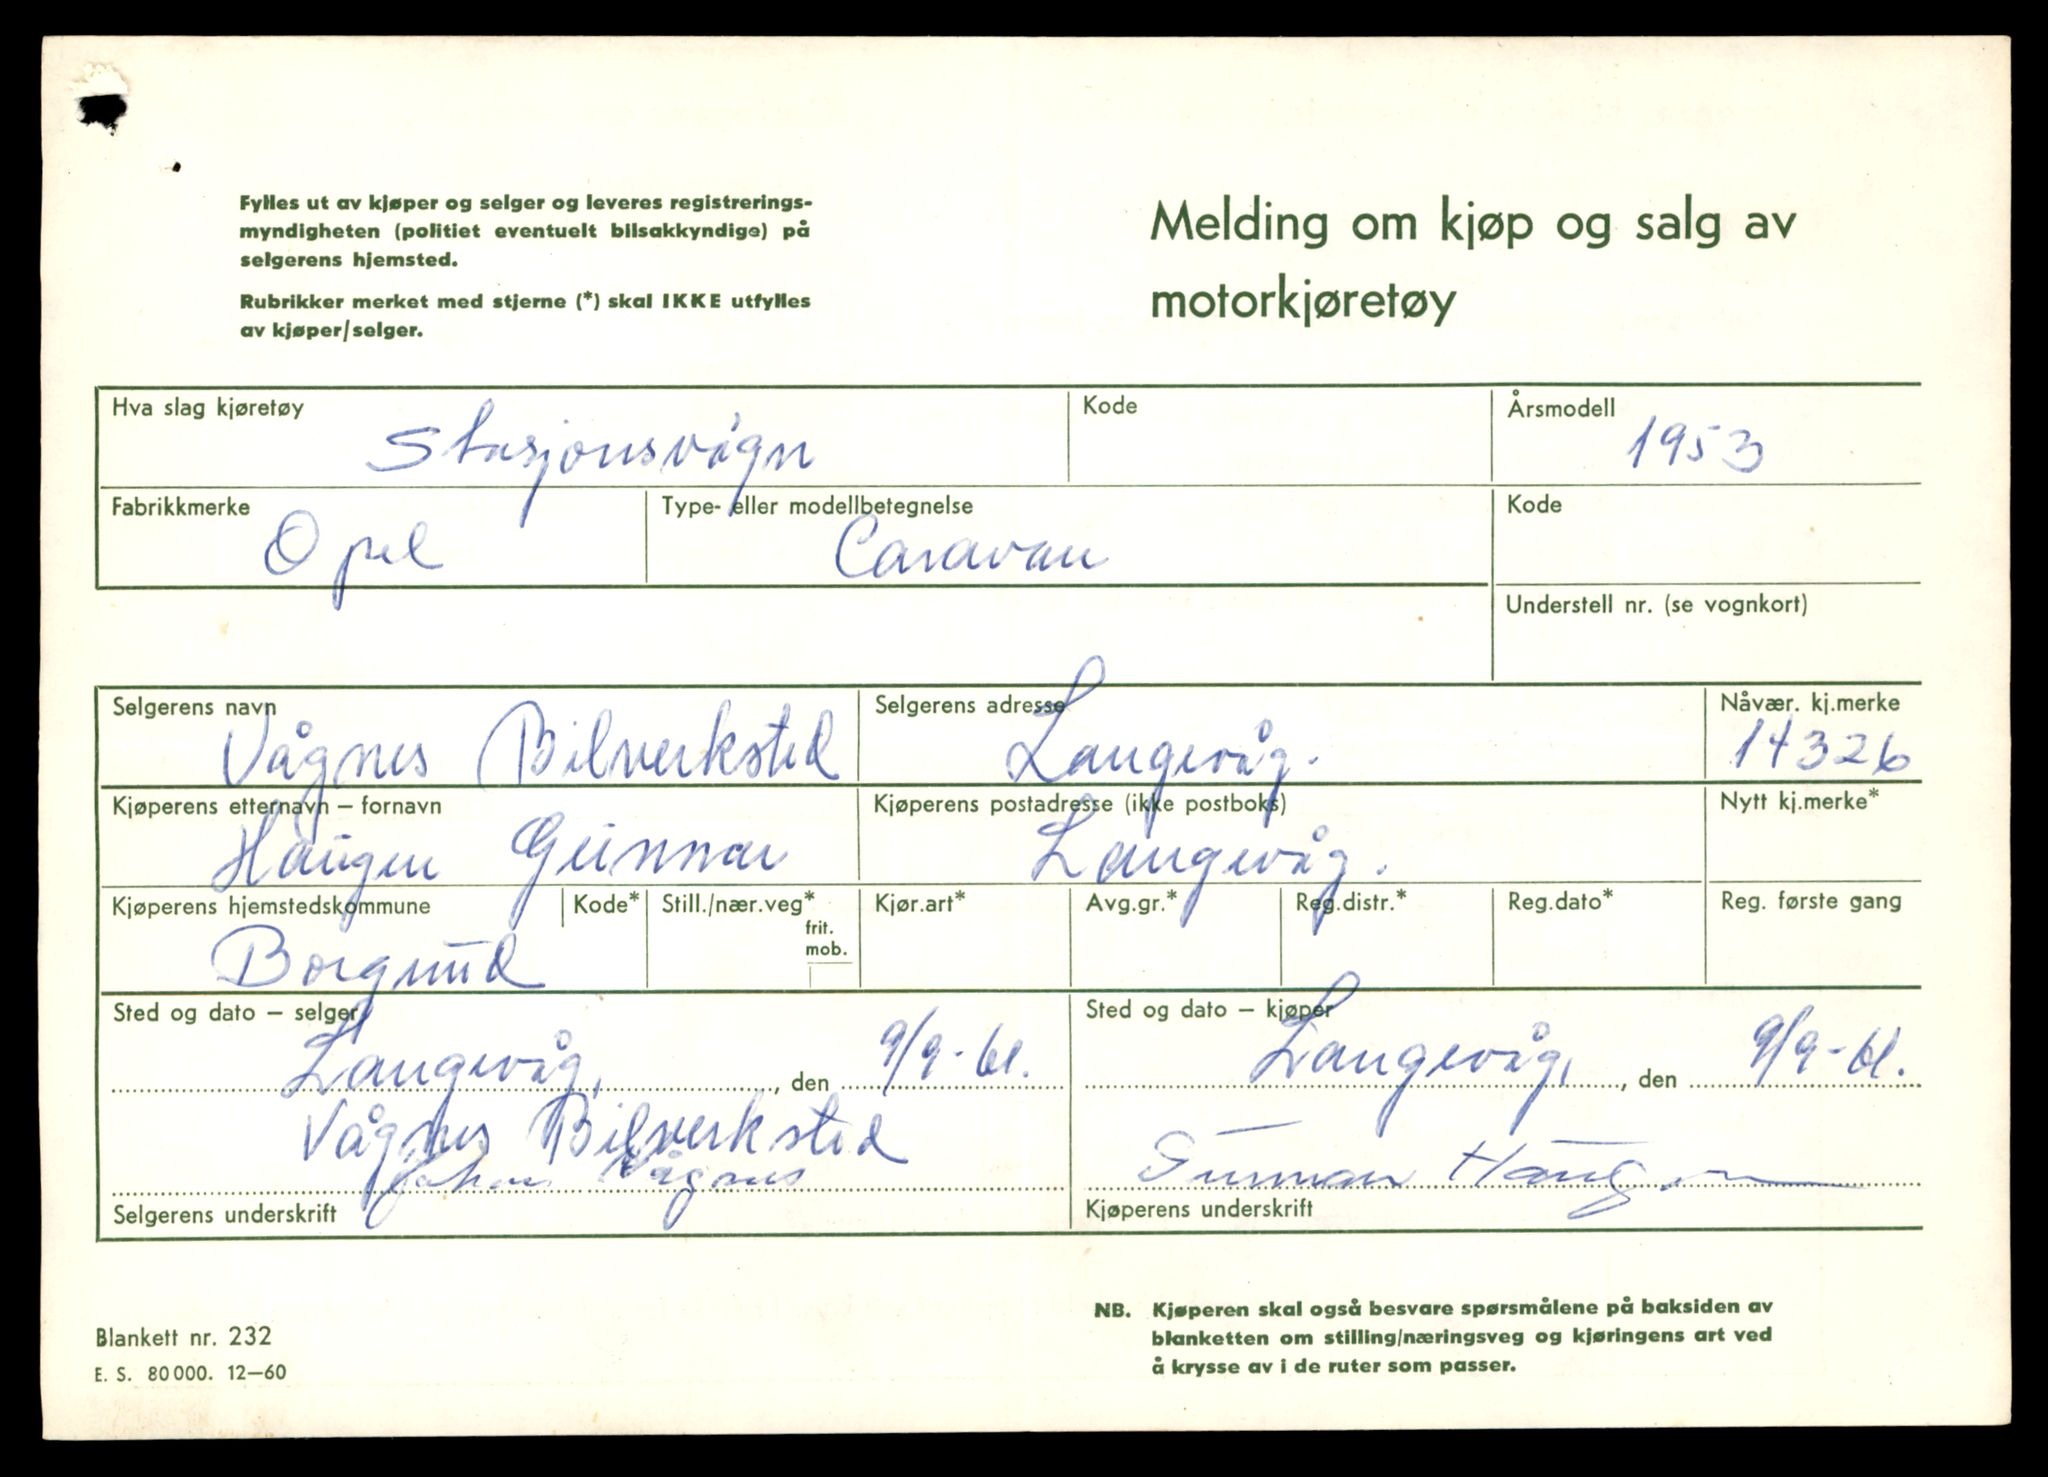 Fylles ut av kjøper og selger og leveres registrerings-
myndigheten (politiet eventuelt bilsakkyndige) på
selgerens hjemsted.
Rubrikker merket med stjerne (*) skal IKKE utfylles
av kjøper/selger.
Melding om kjøp og salg av
motorkjøretøy
Hva slag kjøretøy
Stasjonsvógn
Kode
Årsmodell
1953
Fabrikkmerke
Opel
Type- eller modellbetegnelse
Caravan
Kode
Understell nr. (se vognkort)
Selgerens navn
Vågnes Bilverksted
Selgerens adresse
Langevåg.
Nåvær. kj.merke
14326
Kjøperens etternavn – fornavn
Haugen Gunnar
Kjøperens postadresse (ikke postboks)
Langevåg.
Nytt kj.merke*
Kjøperens hjemstedskommune
Borgund
Kode*
Still./nær.veg*
frit.
mob.
Kjør.art*
Avg.gr.*
Reg.distr.*
Reg.dato*
Reg. første gang
Sted og dato – selger
Langevåg, , den 9/9-61.
Vågnes Bilverksted
Johan Vågnes
Selgerens underskrift
Sted og dato – kjøper
Langevåg, , den 9/9-61.
Gunnar Haugen
Kjøperens underskrift
Blankett nr. 232
E. S. 80 000. 12–60
NB. Kjøperen skal også besvare spørsmålene på baksiden av
blanketten om stilling/næringsveg og kjøringens art ved
å krysse av i de ruter som passer.